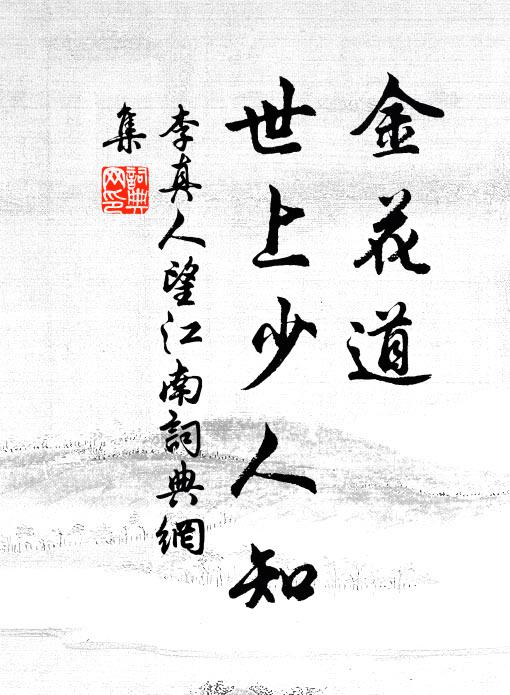 金花道
世上少人知
李真人望江南詞典網
集
詞典網印